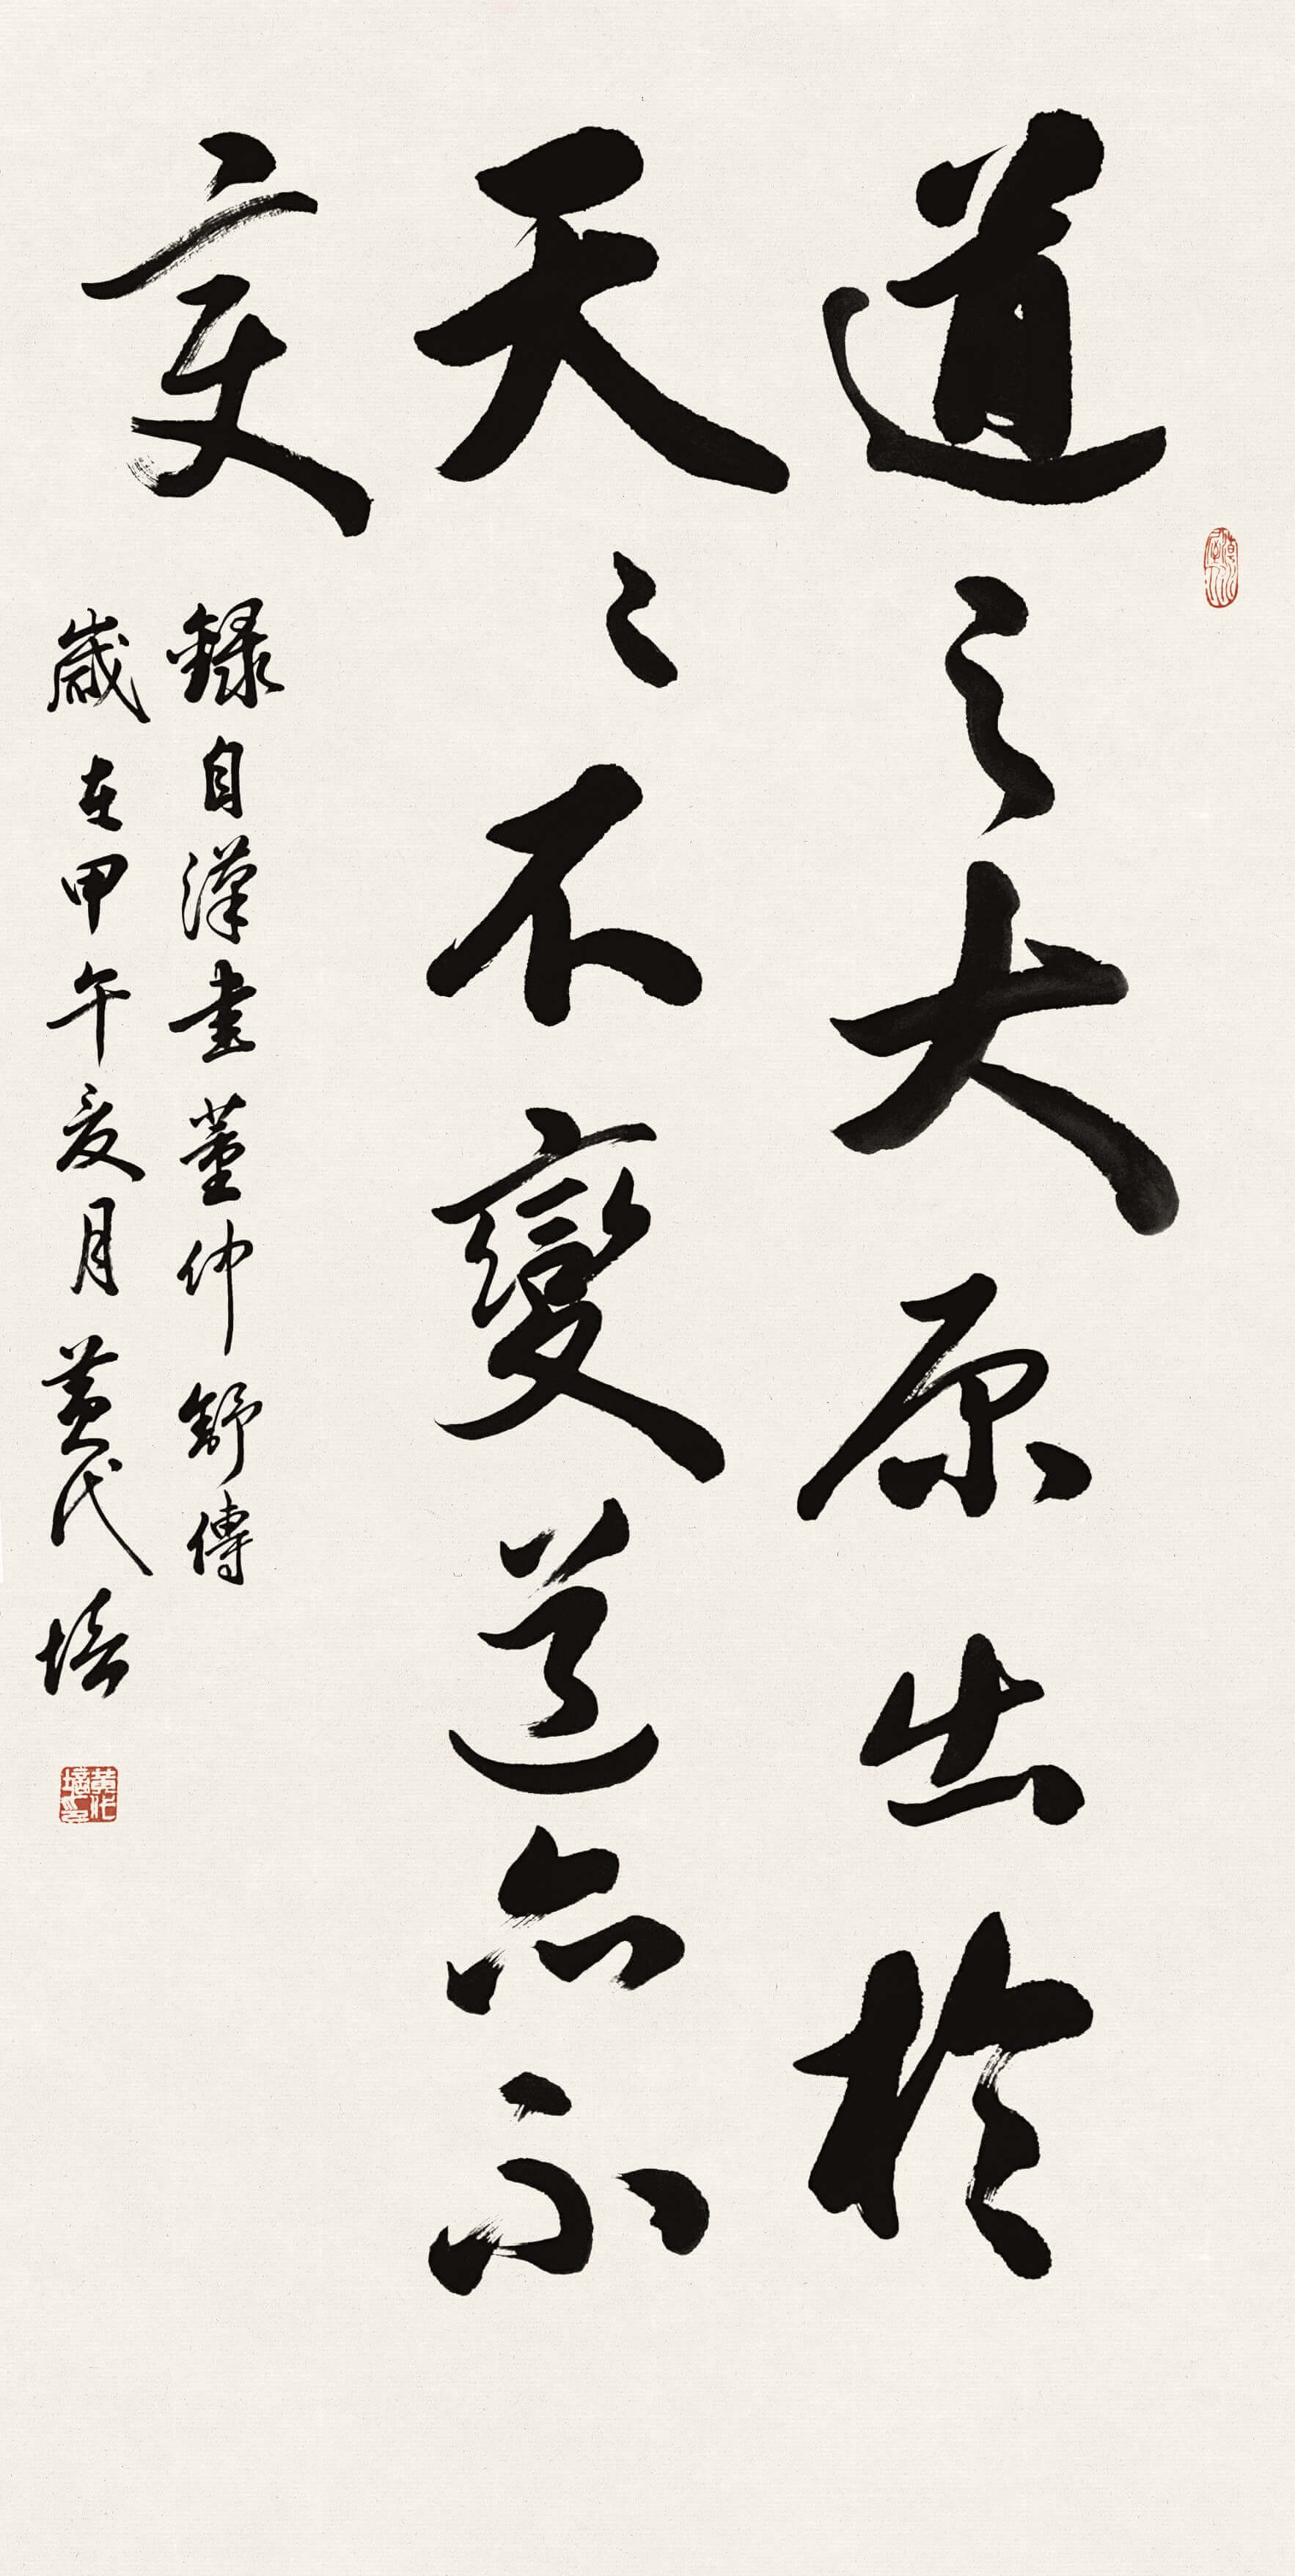 道之大原出於
天〻不變道亦不
变
錄自漢書董仲舒傳
歲在甲午夏月黄代培